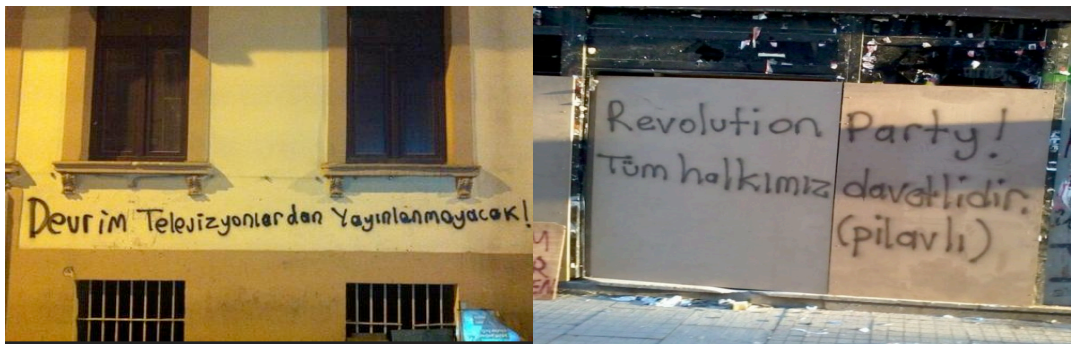 Devrim Televizyonlardan Yayınlanmayacak!
Revolution Party!
Tüm halkımız davetlidir.
(pilavlı)